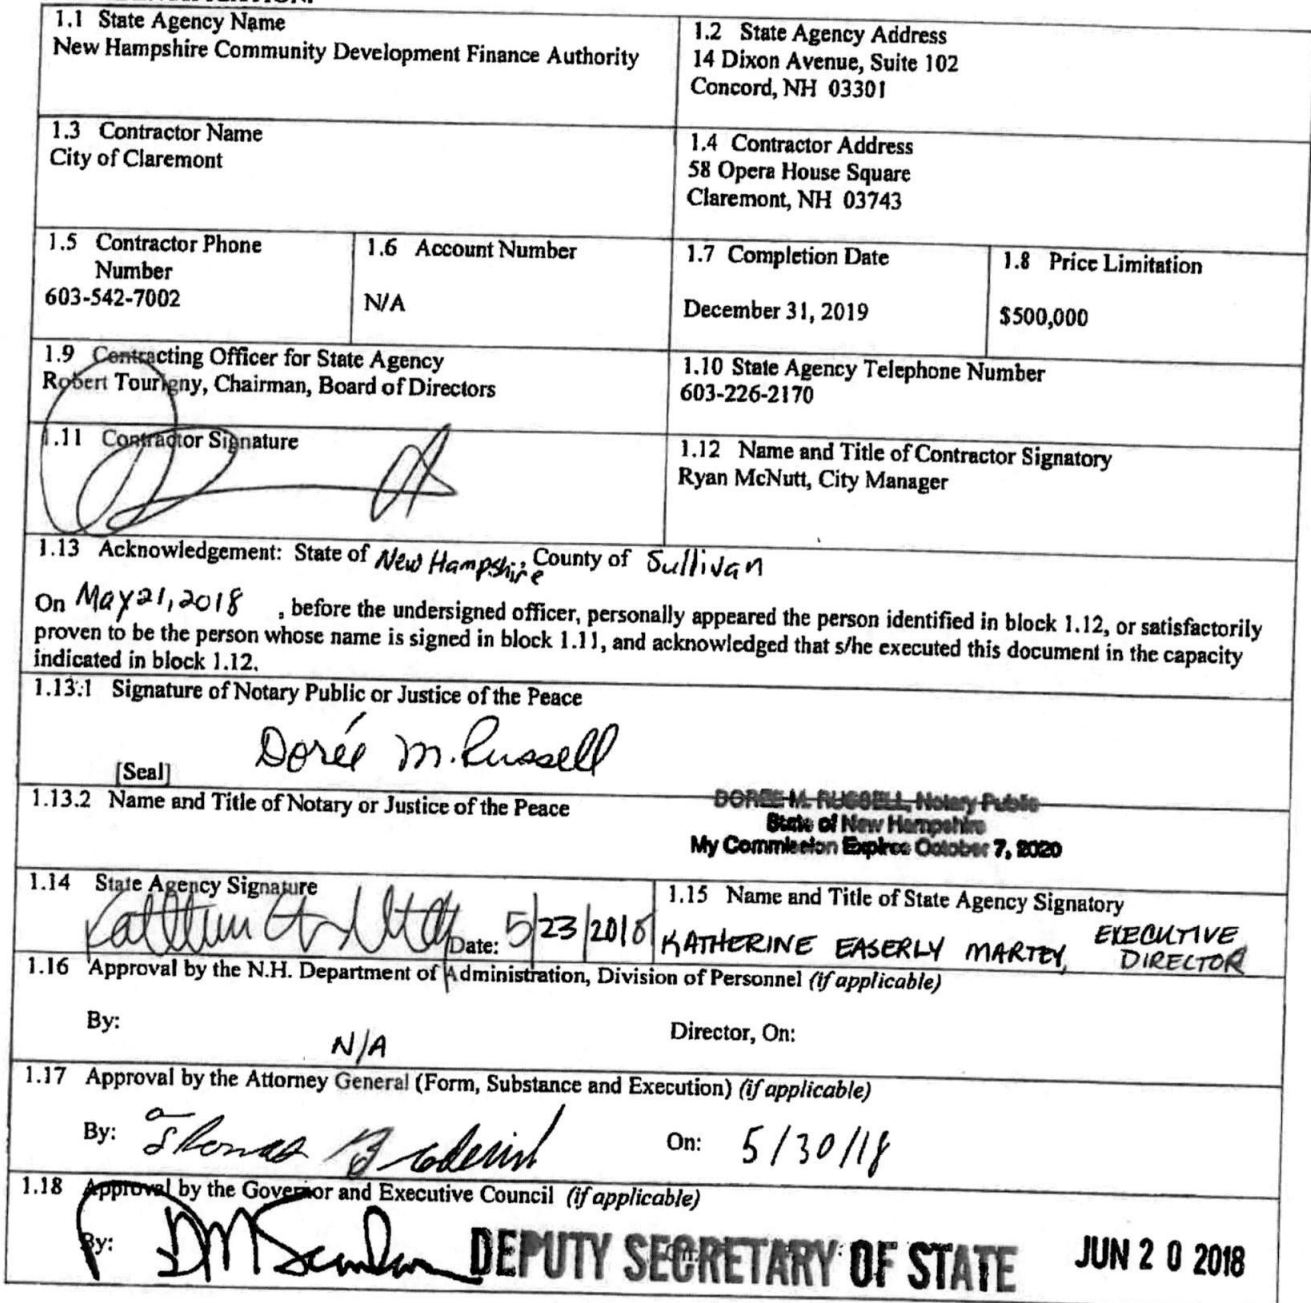 1.1 State Agency Name
New Hampshire Community Development Finance Authority
1.2 State Agency Address
14 Dixon Avenue, Suite 102
Concord, NH 03301
1.3 Contractor Name
City of Claremont
1.4 Contractor Address
58 Opera House Square
Claremont, NH 03743
1.5 Contractor Phone
Number
603-542-7002
1.6 Account Number
N/A
1.7 Completion Date
December 31, 2019
1.8 Price Limitation
$500,000
1.9 Contracting Officer for State Agency
Robert Tourigny, Chairman, Board of Directors
1.10 State Agency Telephone Number
603-226-2170
1.11 Contractor Signature
1.12 Name and Title of Contractor Signatory
Ryan McNutt, City Manager
1.13 Acknowledgement: State of New Hampshire, County of Sullivan
On May 21, 2018 , before the undersigned officer, personally appeared the person identified in block 1.12, or satisfactorily
proven to be the person whose name is signed in block 1.11, and acknowledged that s/he executed this document in the capacity
indicated in block 1.12.
1.13.1 Signature of Notary Public or Justice of the Peace
Dorée M. Russell
[Seal]
1.13.2 Name and Title of Notary or Justice of the Peace
DOREE M. RUSSELL, Notary Public
State of New Hampshire
My Commission Expires October 7, 2020
1.14 State Agency Signature
Date: 5/23/2018
1.15 Name and Title of State Agency Signatory
KATHERINE EASERLY MARTEY, EXECUTIVE
DIRECTOR
1.16 Approval by the N.H. Department of Administration, Division of Personnel (if applicable)
By:
N/A
Director, On:
1.17 Approval by the Attorney General (Form, Substance and Execution) (if applicable)
By: Thomas Broderick
On: 5/30/18
1.18 Approval by the Governor and Executive Council (if applicable)
By:
DEPUTY SECRETARY OF STATE
JUN 20 2018